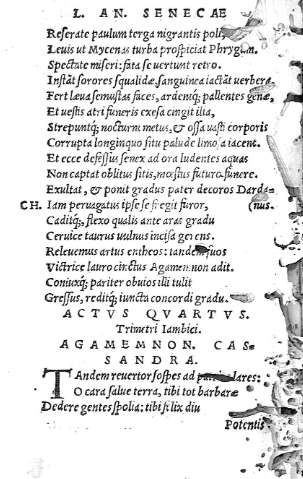 L. AN. SENECAE
Reserate paulum terga nigrantis poli,
Leuis ut Mycenas turba prospiciat Phrygum.
Spectate miseri: fata se uertunt retro.
Instāt sorores squalidæ, sanguinea iactāt uerbera.
Fert læua semustas faces, ardentq́; pallentes genæ,
Et uestis atri funeris exesa cingit ilia,
Strepuntq́; nocturni metus, & ossa uasti corporis
Corrupta longinquo situ palude limosa iacent.
Et ecce defessus senex ad ora ludentes aquas
Non captat oblitus sitis, mœstus futuro funere.
Exultat, & ponit gradus pater decoros Darda-
CH. Iam peruagatus ipse se fregit furor, (nus.
Caditq́;, flexo qualis ante aras gradu
Ceruice taurus uulnus incisa gerens.
Releuemus artus entheos: tandem suos
Victrice lauro cinctus Agamemnon adit.
Coniuxq́; pariter obuios illi tulit
Gressus, reditq́; iuncta concordi gradu.
ACTVS QVARTVS.
Trimetri Iambici.
AGAMEMNON. CAS-
SANDRA.
TAndem reuertor sospes ad patrios lares:
O cara salue terra, tibi tot barbaræ
Dedere gentes spolia: tibi felix diu
Potentis